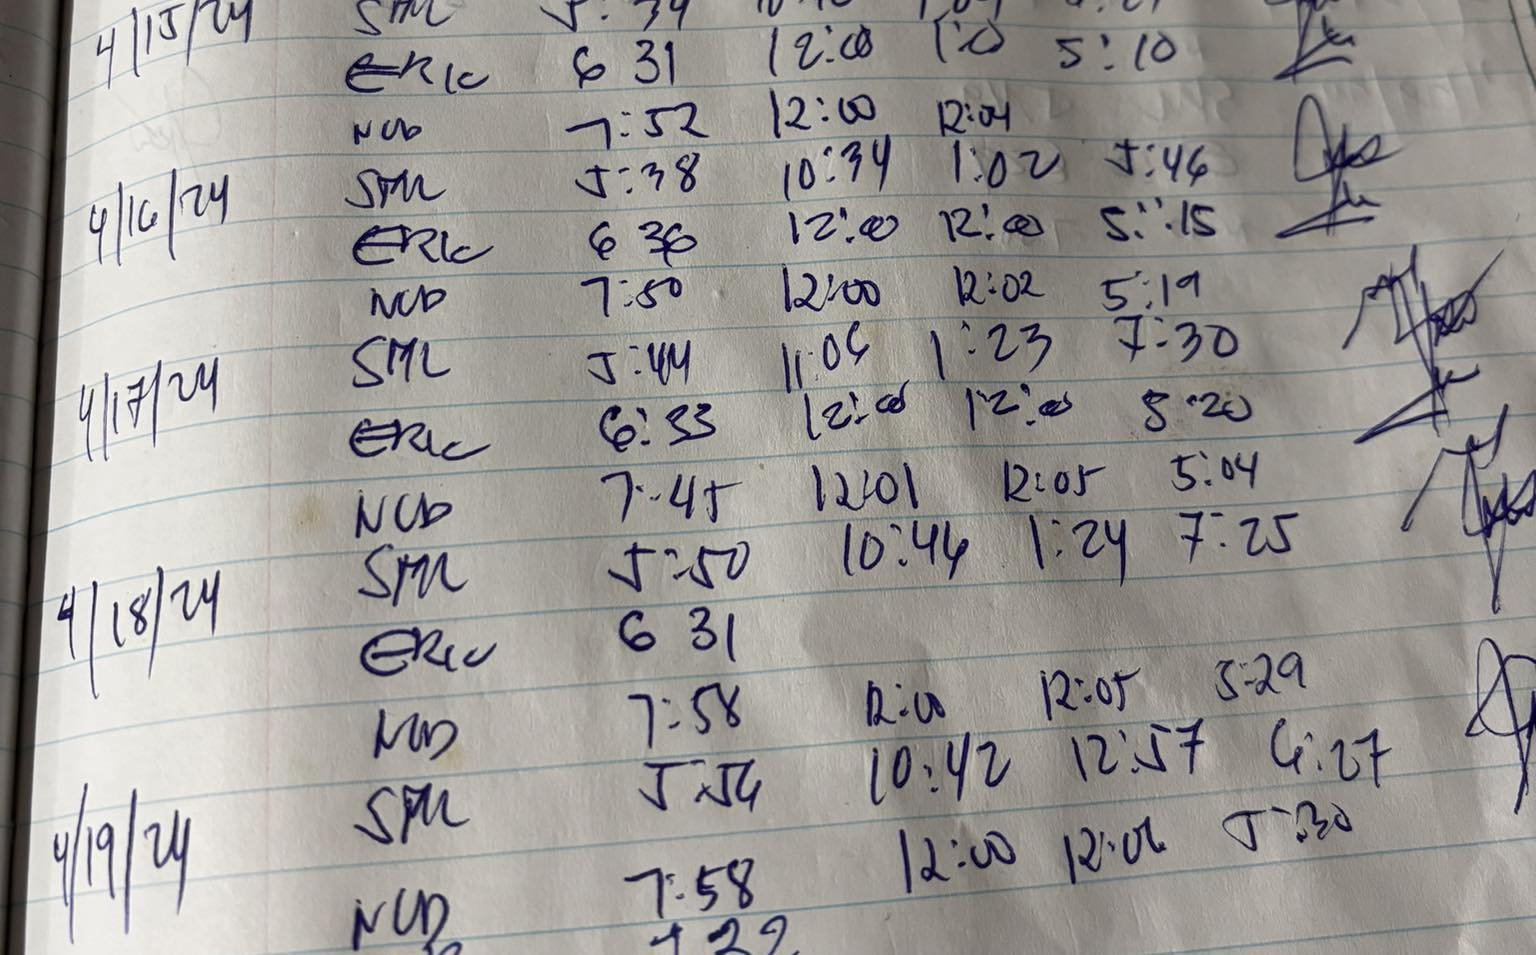 4/15/24 SML 5:34
ERIC 6 31 12:00 1:00 5:10
NCD 7:52 12:00 12:04
4/16/24 SML 5:38 10:34 1:02 5:46
ERIC 6 36 12:00 12:00 5:15
NCD 7:50 12:00 12:02 5:19
4/17/24 SML 5:44 11:06 1:23 7:30
ERIC 6:33 12:00 12:00 5:20
NCD 7:45 12:01 12:05 5:04
4/18/24 SML 5:50 10:46 1:24 7:25
ERIC 6 31
NCD 7:58 12:00 12:05 5:29
4/19/24 SML 5:56 10:42 12:57 6:27
NCD 7:58 12:00 12:06 5:30